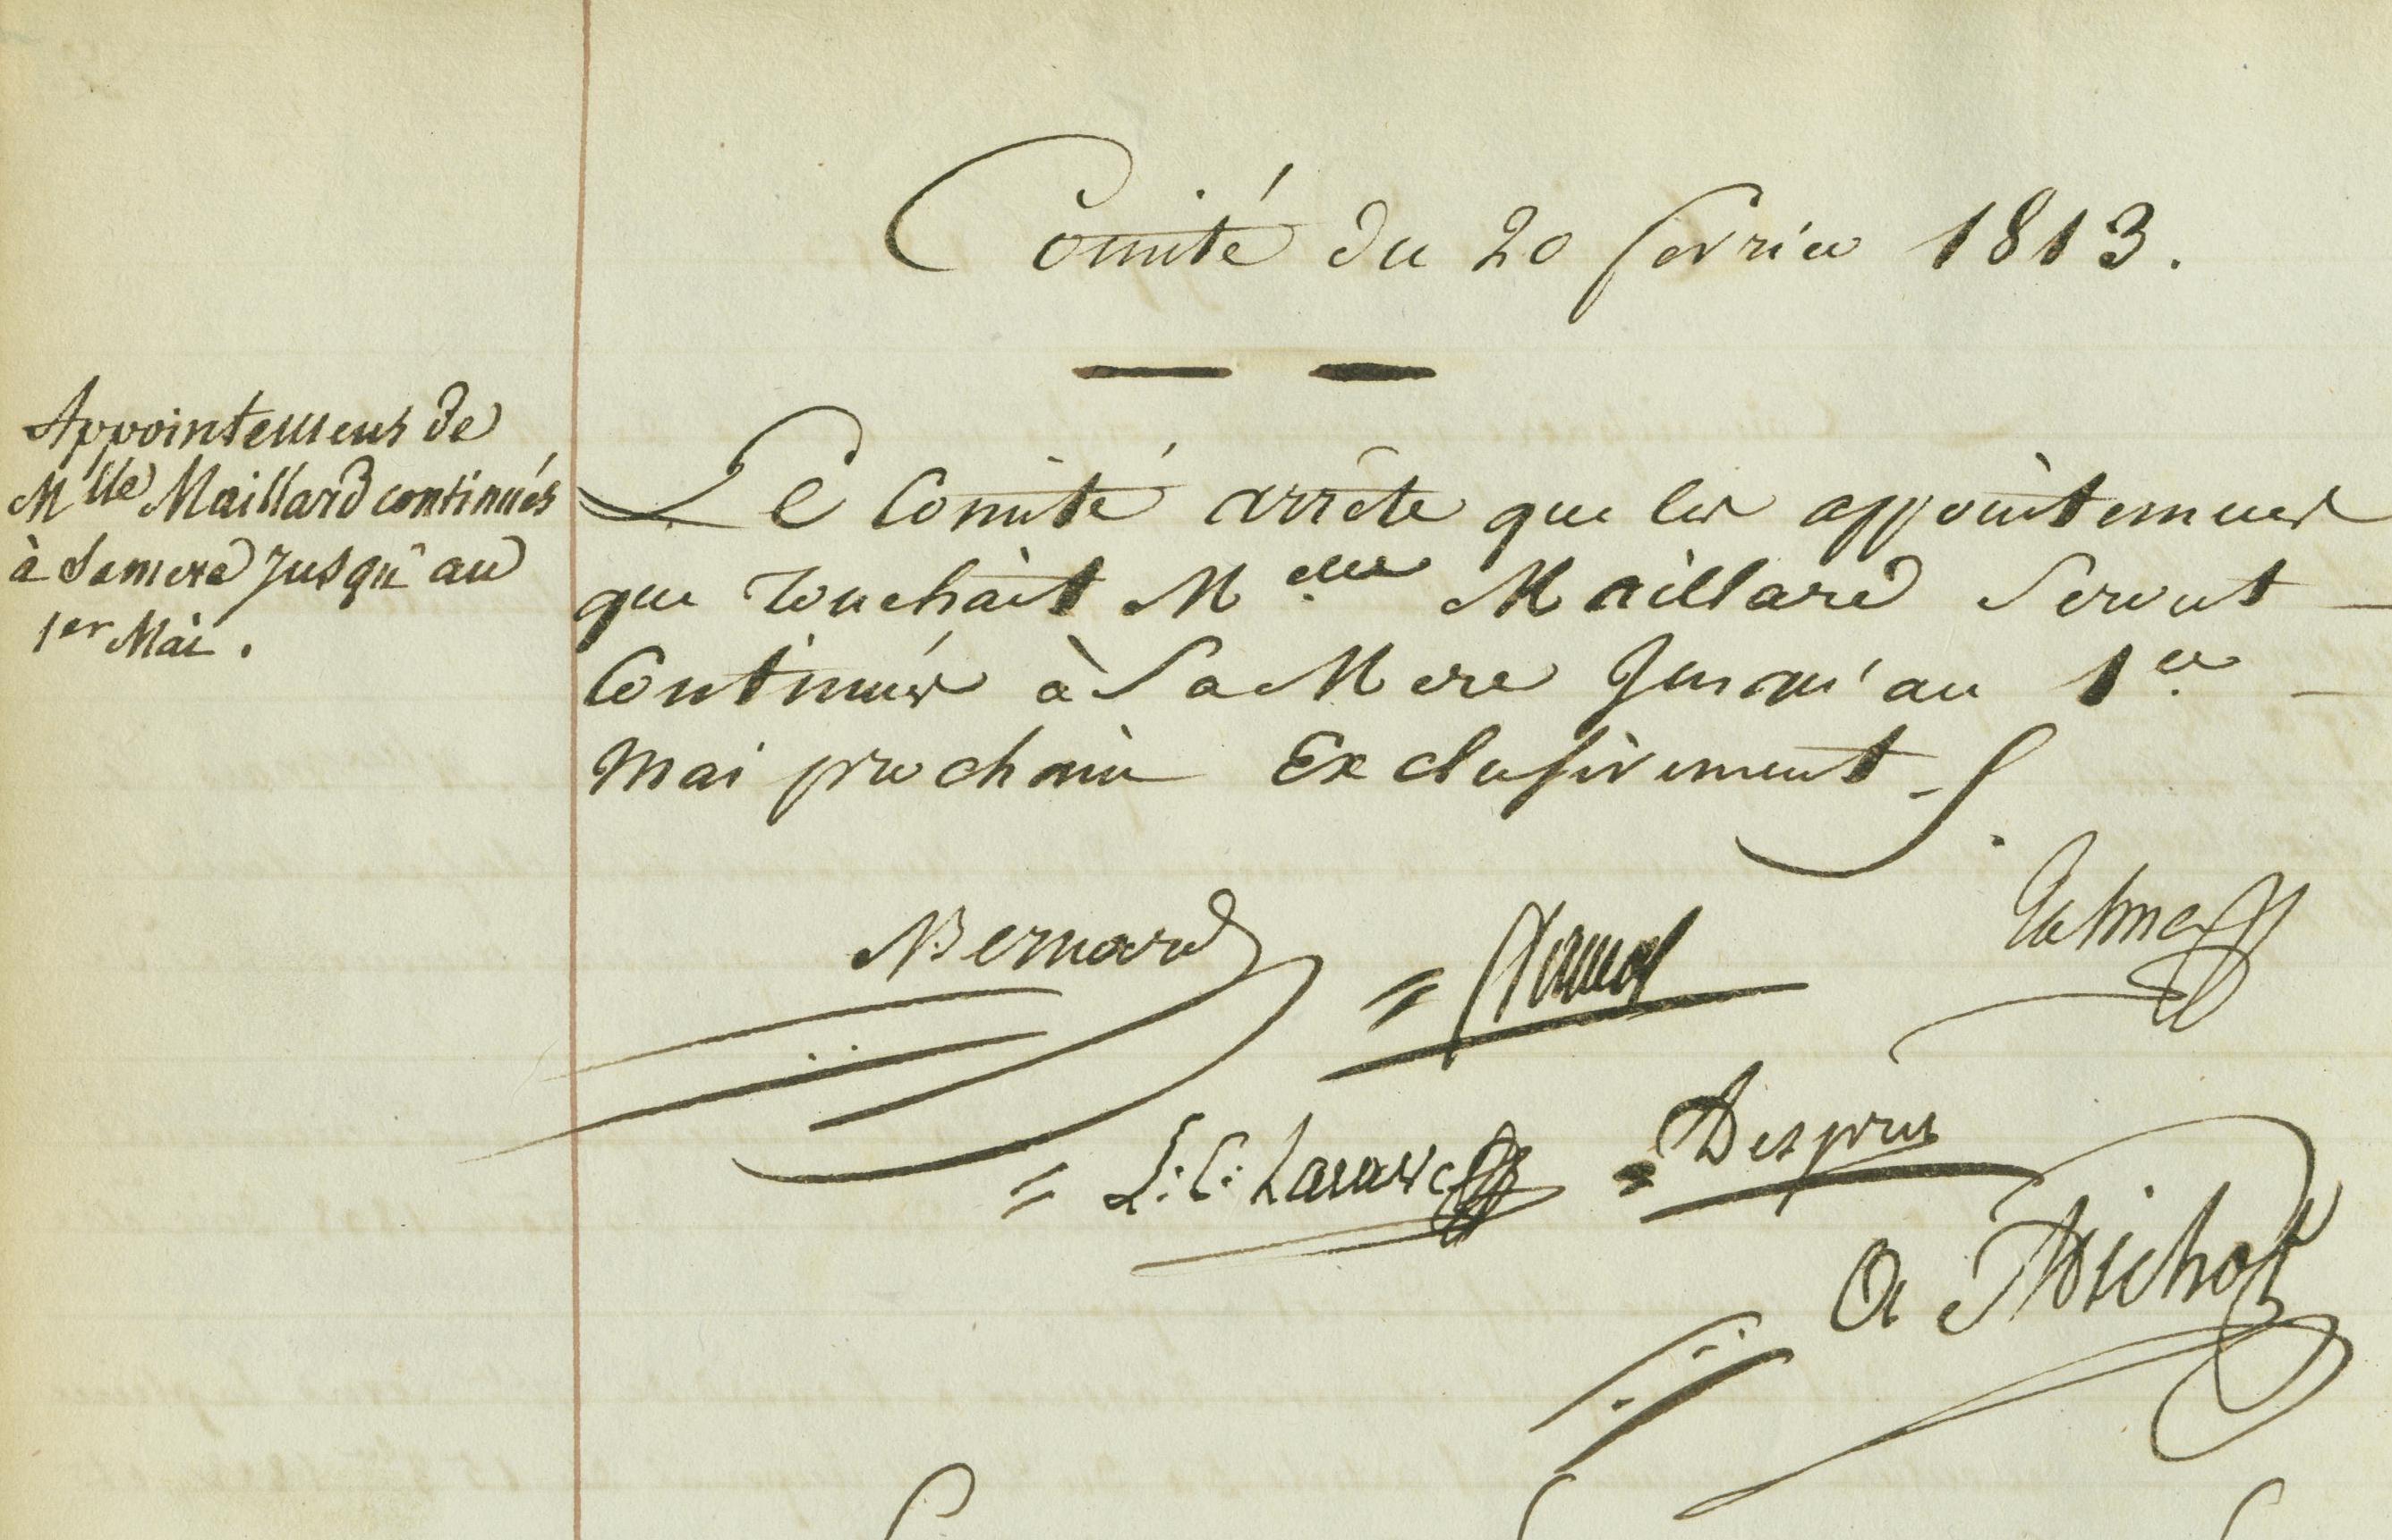 Comité du 20 fevrier 1813.
Appointemens de
Mlle Maillard continués
à Samere Jusqu'au
1er Mai.
Le Comité arrête que les appointemens
que touchait Melle Maillard Seront
Continués à Sa Mere Jusqu'au 1er
Mai prochain Exclusivement.
Bernard
Talma
Desprus
A Michot